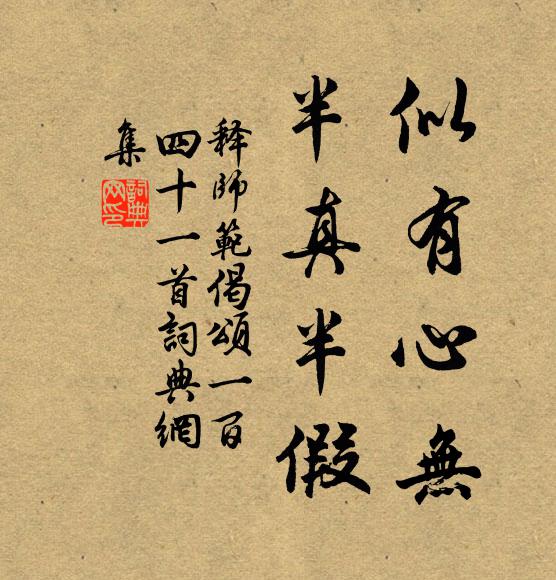 似有心無
半真半假
释師範偈頌一百
四十一首詞典網
集
詞典
网印